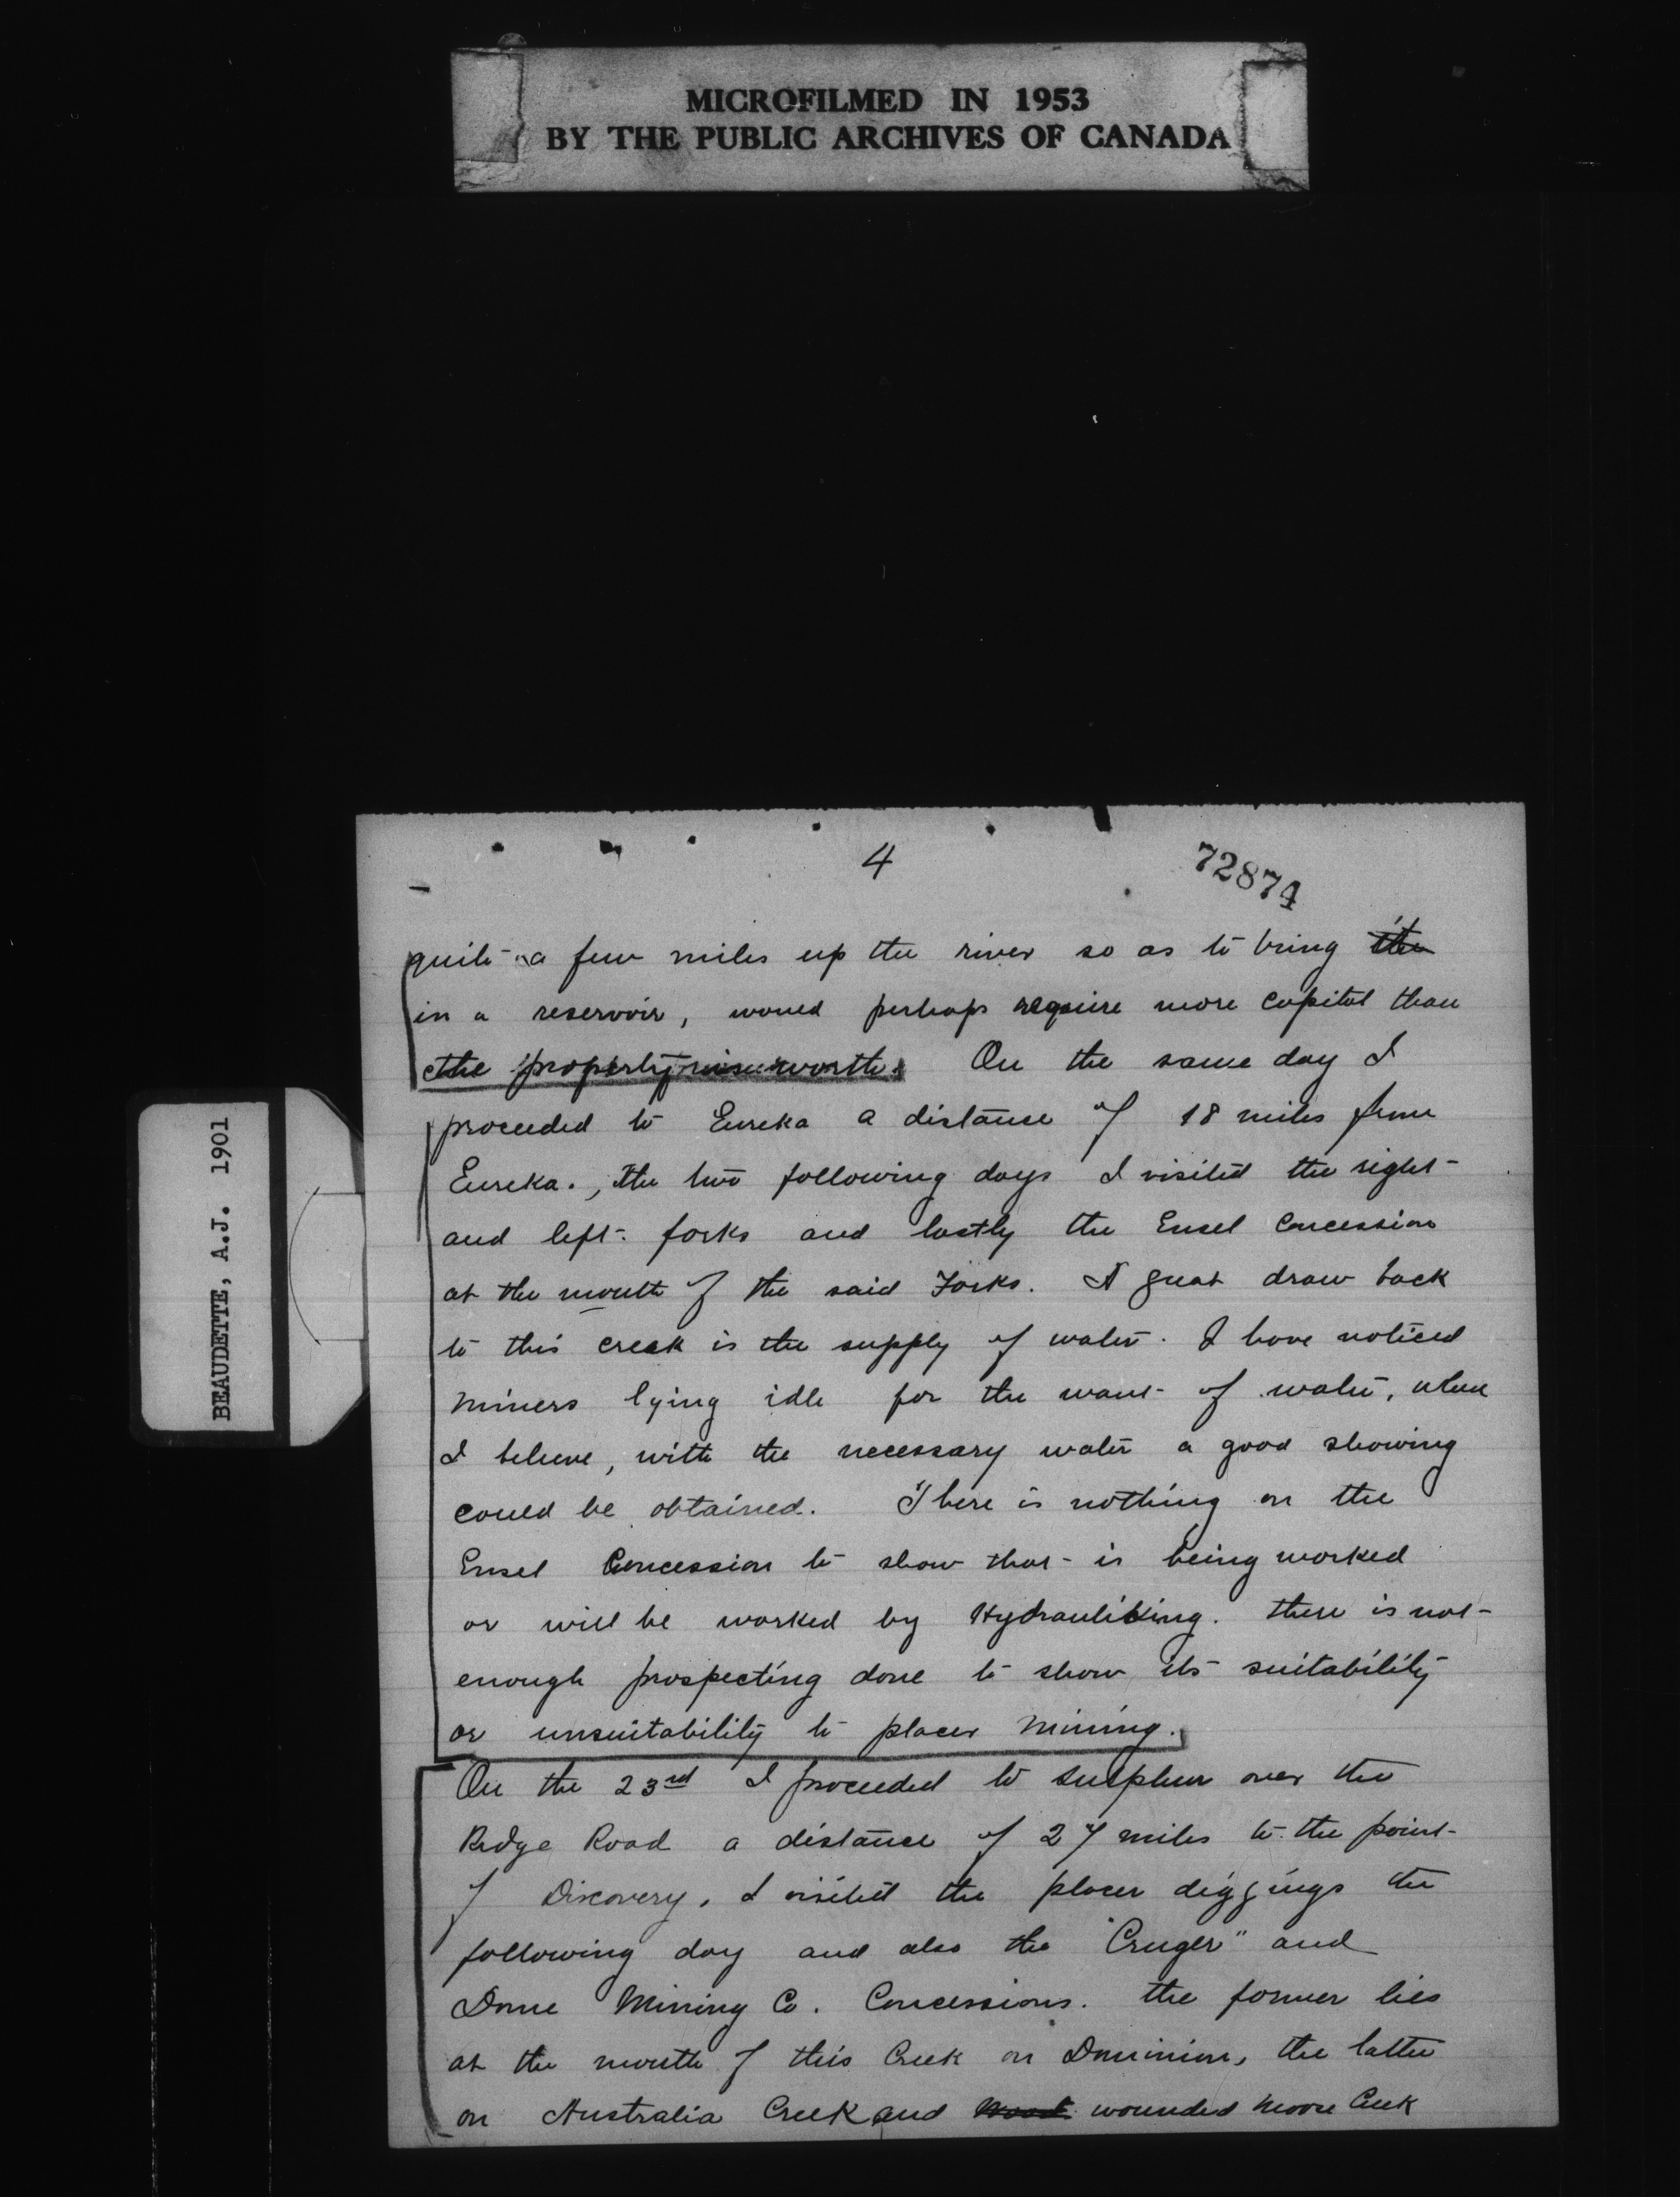 MICROFILMED IN 1953
BY THE PUBLIC ARCHIVES OF CANADA
BEAUDETTE, A.J. 1901
4
72874
quite a few miles up the river so as to bring the
in a reservoir, would perhaps require more capital than
the property worth. On the same day I
proceeded to Eureka a distance of 18 miles from
Eureka., The two following days I visited the right
and left forks and lastly the Ensel Concession
at the mouth of the said Forks. A great draw back
to this creek is the supply of water. I have noticed
miners lying idle for the want of water, when
I believe, with the necessary water a good showing
could be obtained. There is nothing on the
Ensel Concession to show that is being worked
or will be worked by Hydrauliking. there is not
enough prospecting done to show its suitability
or unsuitability to placer mining.
On the 23rd I proceeded to Sulphur over the
Ridge Road a distance of 27 miles to the point
of Discovery, I visited the placer diggings the
following day and also the "Cruger" and
Dome Mining Co. Concessions. the former lies
at the mouth of this Creek on Dominion, the latter
on Australia Creek and wounded Moose Creek